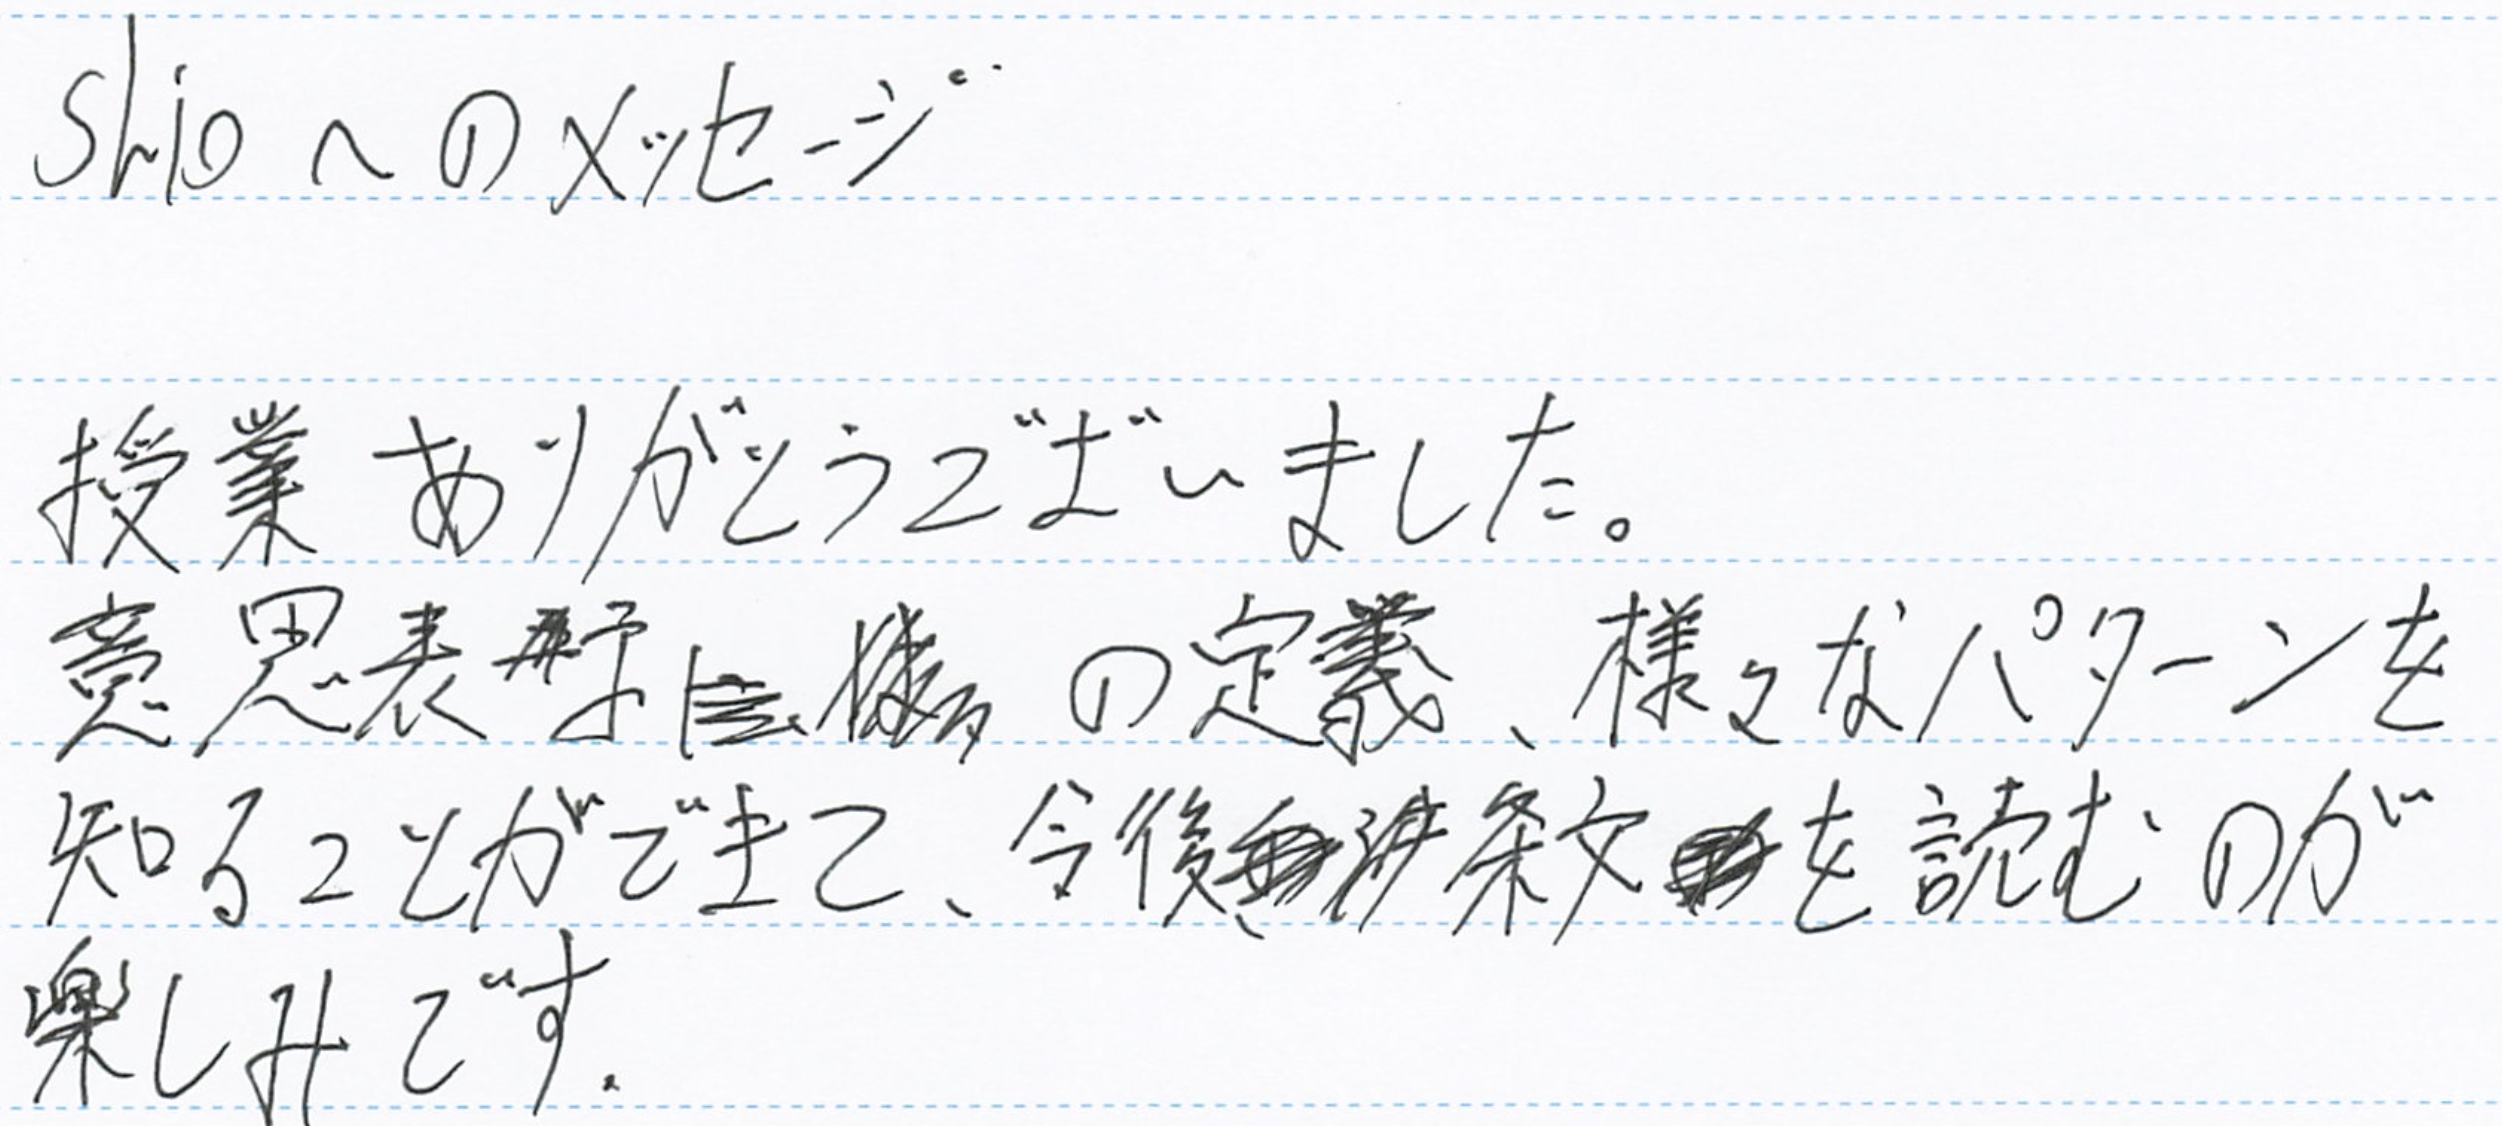 Shioへのメッセージ
授業ありがとうございました。
意思表示の定義、様々なパターンを
知ることができて、今後条文を読むのが
楽しみです.